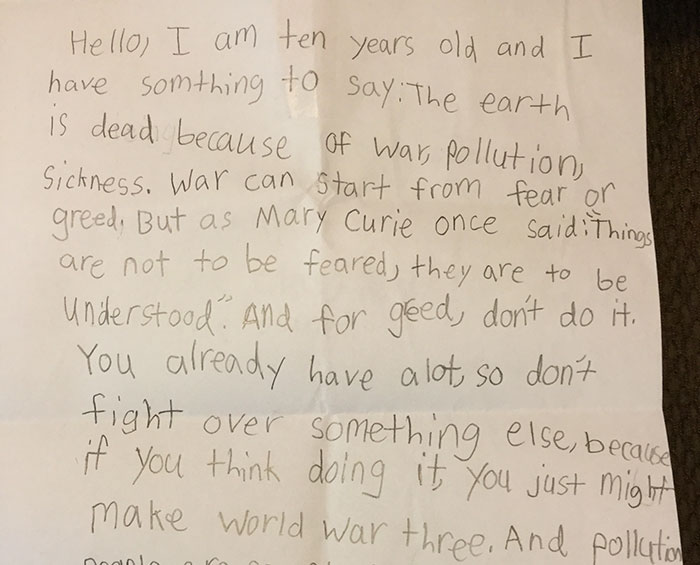 Hello, I am ten years old and I
have somthing to say: The earth
is dead because of war, pollution,
Sickness. War can start from fear or
greed. But as Mary Curie once said: "Things
are not to be feared, they are to be
Understood". And for greed, don't do it.
You already have alot, so don't
fight over something else, because
if you think doing it, you just might
make world war three. And pollution
people are